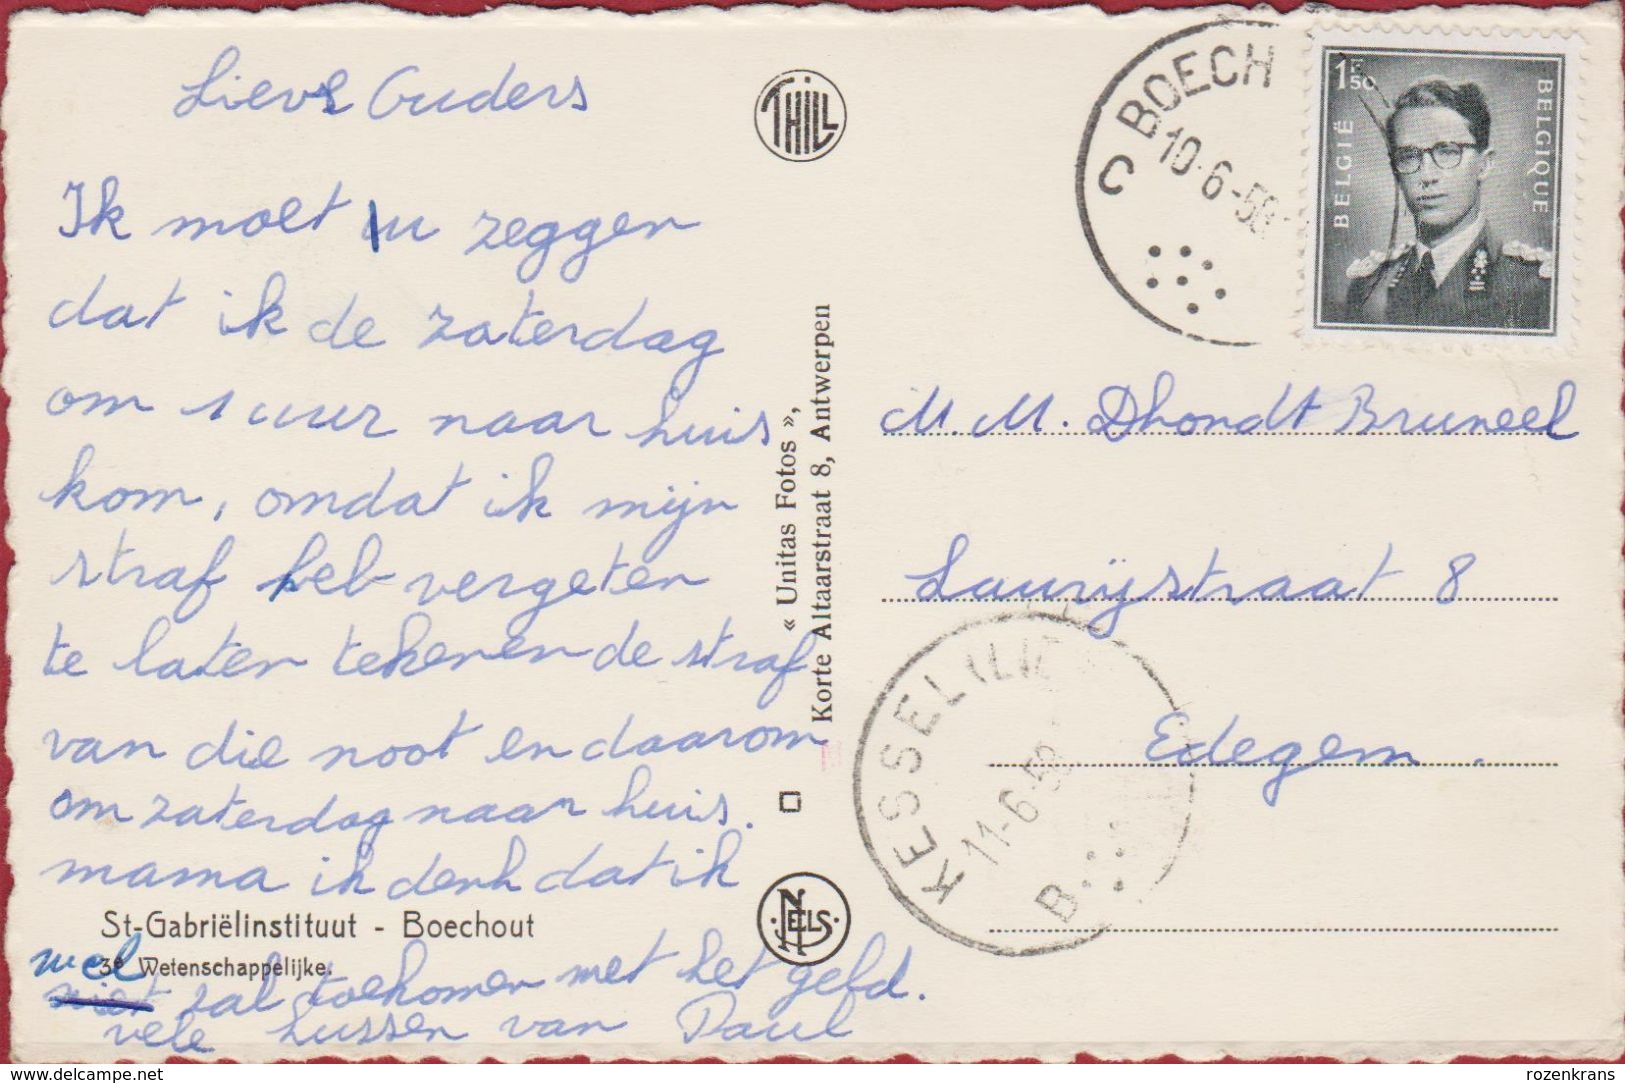 Lieve Ouders
Ik moet u zeggen
dat ik de zaterdag
om 1 uuur naar huis
kom, omdat ik mijn
straf heb vergeten
te laten tekenen de straf
van die noot en daarom
om zaterdag naar huis.
mama ik denk dat ik
St-Gabriëlinstituut - Boechout
3e Wetenschappelijke.
wel
niet zal toekomen met het geld.
vele kussen van Paul
THILL
« Unitas Fotos »,
Korte Altaarstraat 8, Antwerpen
NELS
C BOECH
10-6-58
1F50
BELGIË
BELGIQUE
M. M. Dhondt Bruneel
Laurijstraat 8
Edegem.
KESSEL (LIE
11-6-58
B
delcampe.net
rozenkrans